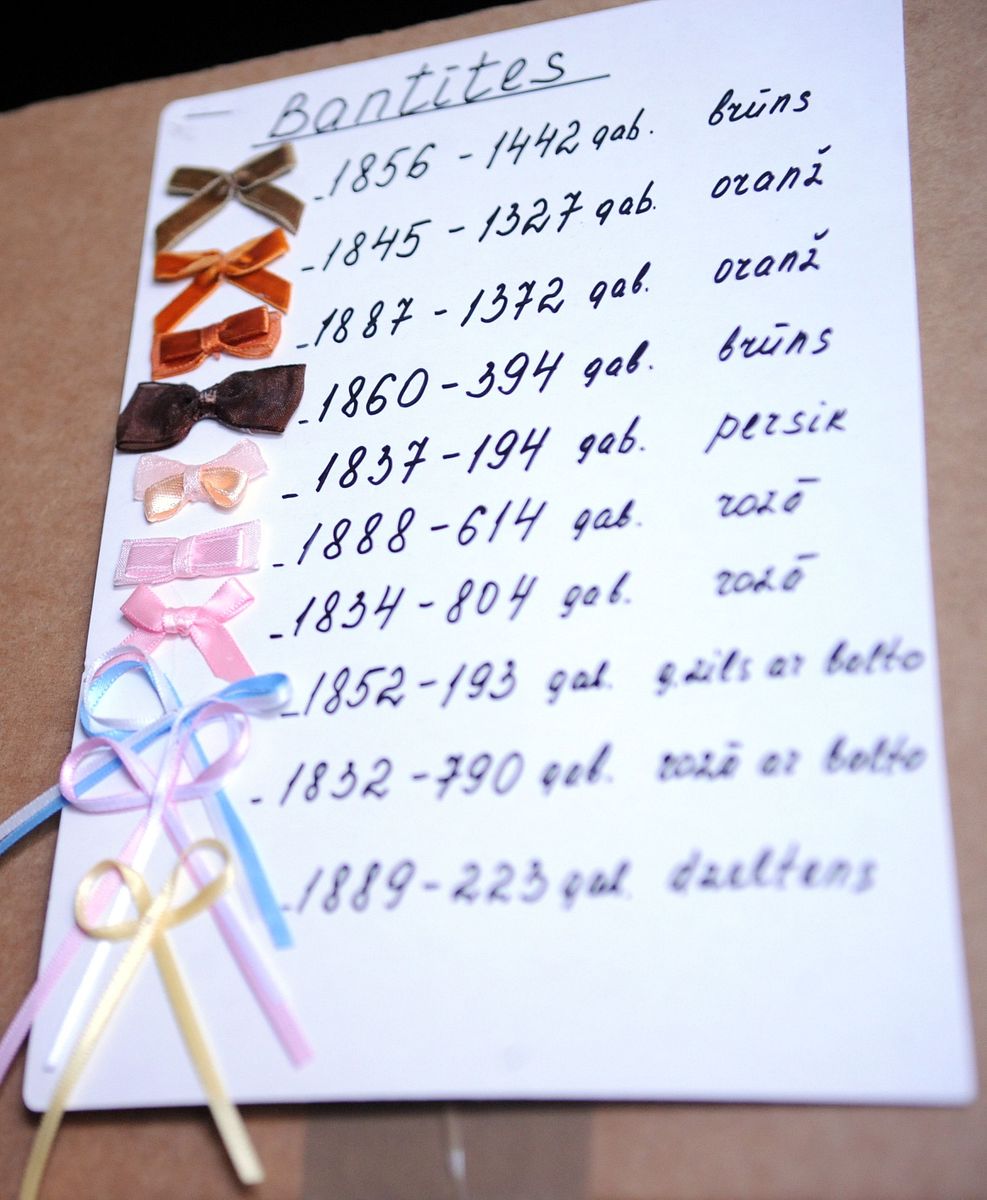 Bantītes
- 1856 - 1442 gab. brūns
- 1845 - 1327 gab. oranž
- 1887 - 1372 gab. oranž
- 1860 - 394 gab. brūns
- 1837 - 194 gab. persik
- 1888 - 614 gab. rozā
- 1834 - 804 gab. rozā
- 1852 - 193 gab. g.zils ar balto
- 1832 - 790 gab. rozā ar balto
- 1889 - 223 gab. dzeltens